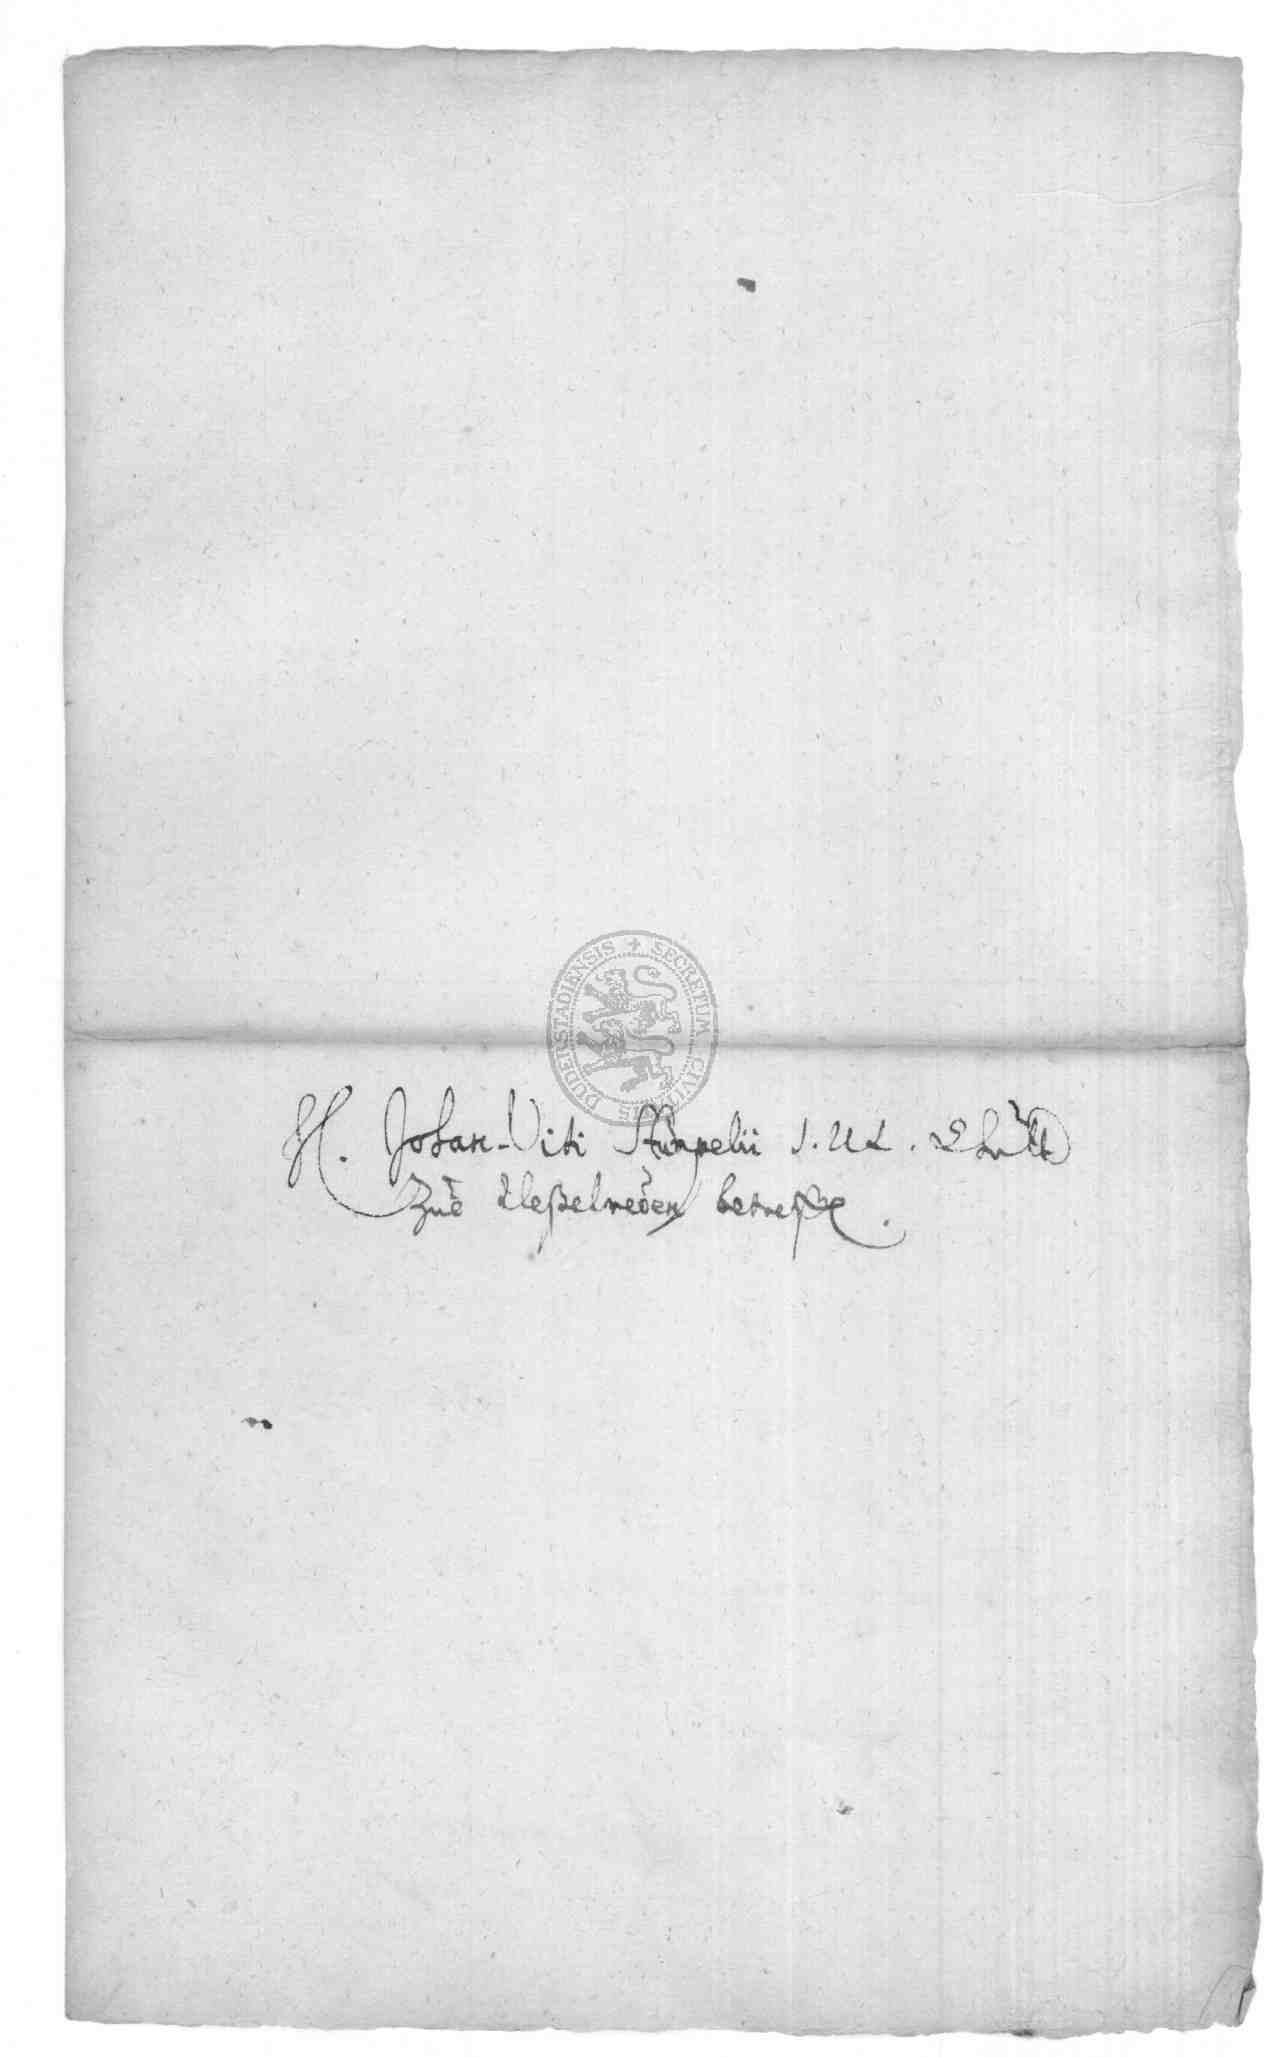 SECRETUM CIVITATIS DUDERSTADIENSIS
H. Johan-Viti Stümpelii J. U. L.
Zue Weßelreden betreff.